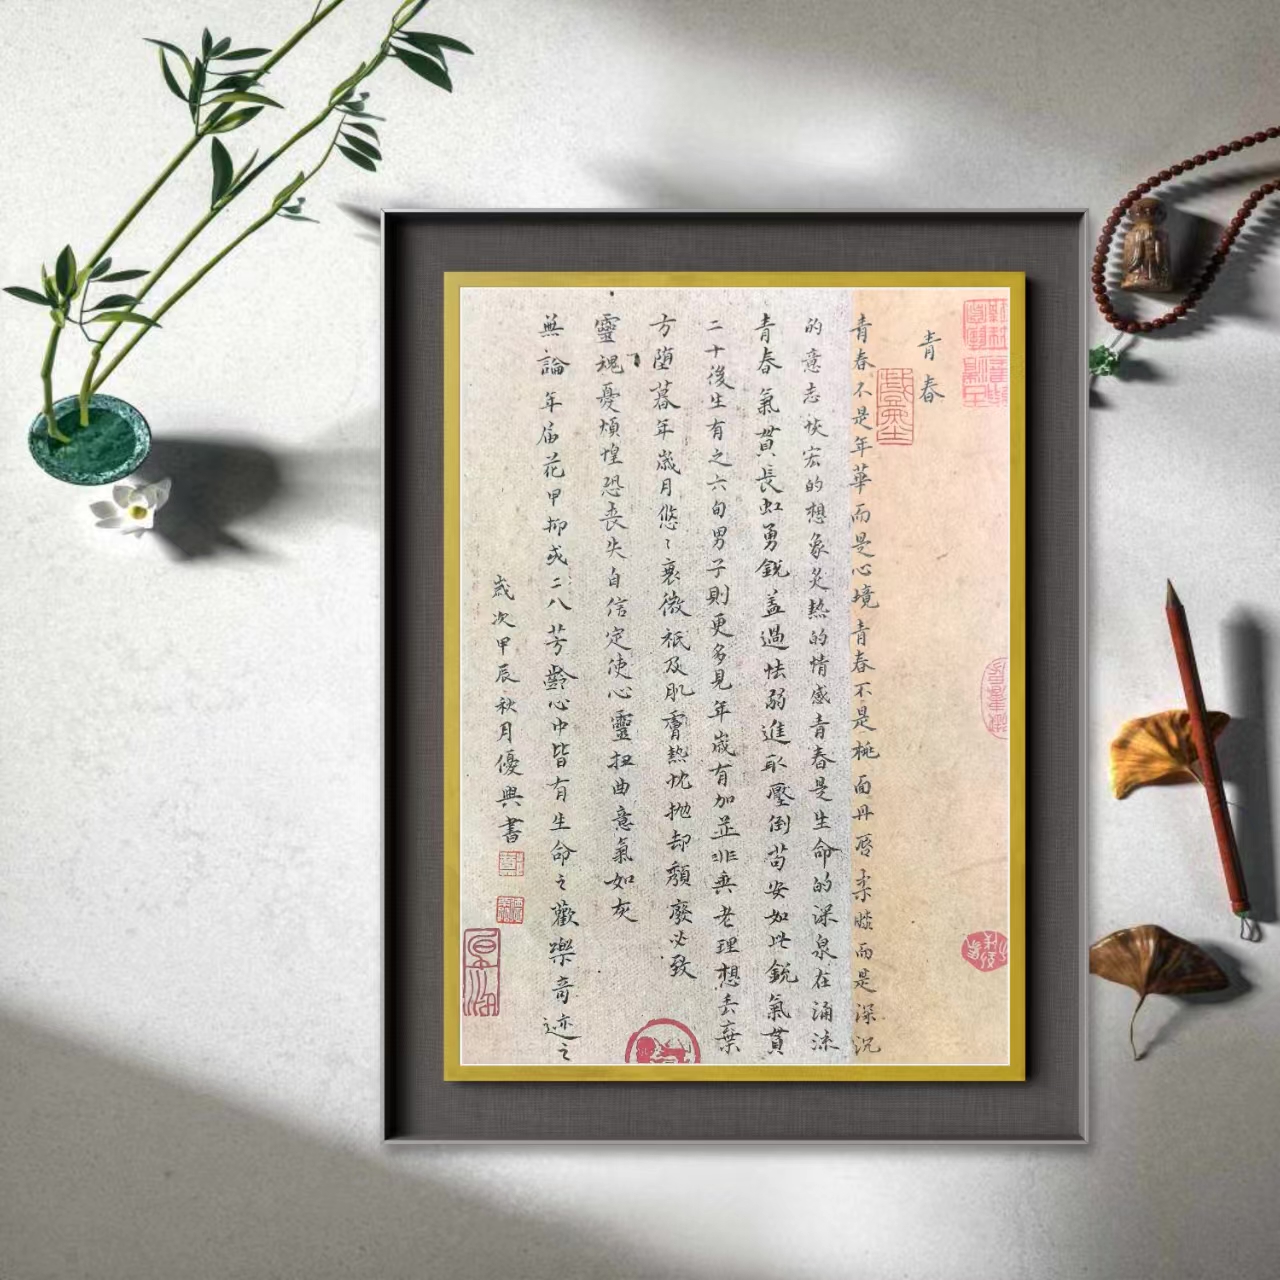 青春
青春不是年華而是心境青春不是桃面丹唇柔膝而是深沉
的意志恢宏的想象炙熱的情感青春是生命的深泉在涌流
青春氣貫長虹勇銳蓋過怯弱進取壓倒苟安如此銳氣
二十後生有之六旬男子則更多見年歲有加並非垂老理想丟棄
方墮暮年歲月悠〻衰微祇及肌膚熱忱拋却頹廢必致
靈魂憂煩惶恐丧失自信定使心靈扭曲意氣如灰
無論年届花甲抑或二八芳齡心中皆有生命之歡樂奇迹之
歲次甲辰秋月優興書